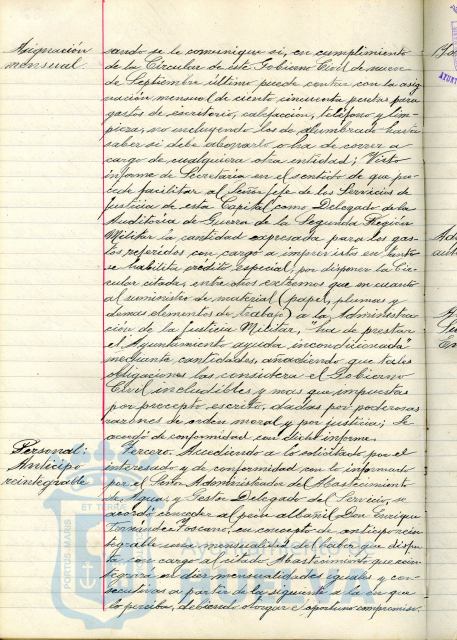 Asignación
mensual.
sando se le comunique si, en cumplimiento
de la Circular de este Gobierno Civil de nueve
de Septiembre último puede contar con la asig-
nación mensual de ciento cincuenta pesetas para
gastos de escritorio, calefacción, teléfono y lim-
pieza, no incluyendo los de alumbrado hasta
saber si debe abonarlo o ha de correr a
cargo de cualquiera otra entidad; Visto
informe de Secretaría en el sentido de que pro-
cede facilitar al Señor Jefe de los Servicios de
Justicia de esta Capital como Delegado de la
Auditoria de Guerra de la Segunda Región
Militar la cantidad expresada para los gas-
tos referidos con cargo a imprevistos en tanto
se habilita crédito especial, por disponer la Cir-
cular citada, entre otros extremos que en cuanto
al suministro de material (papel, plumas y
demas elementos de trabajo) a la Administra-
ción de la Justicia Militar, "ha de prestar
el Ayuntamiento ayuda incondicionada"
mediante cantidades, añadiendo que tales
obligaciones las considera el Gobierno
Civil includibles y mas que impuestas
por precepto escrito, dadas por poderosas
razones de orden moral y por justicia; Se
acordó de conformidad con dicho informe.
Personal:
Anticipo
reintegrable
Tercero. Accediendo a lo solicitado por el
interesado y de conformidad con lo informado
por el Señor Administrador del Abastecimiento
de Aguas y Gestor Delegado del Servicio, se
acordó conceder al peón albañil Don Enrique
Fernández Toscano, en concepto de anticipo rein-
tegrable una mensualidad del haber que disfru-
ta con cargo al citado Abastecimiento que rein-
tegrará en diez mensualidades iguales y con-
secutivas a partir de la siguiente a la en que
lo perciba, debiendo otorgar el oportuno compromiso.
Ayuntamiento de
HUELVA
PORTUS MARIS
ET TERRAE